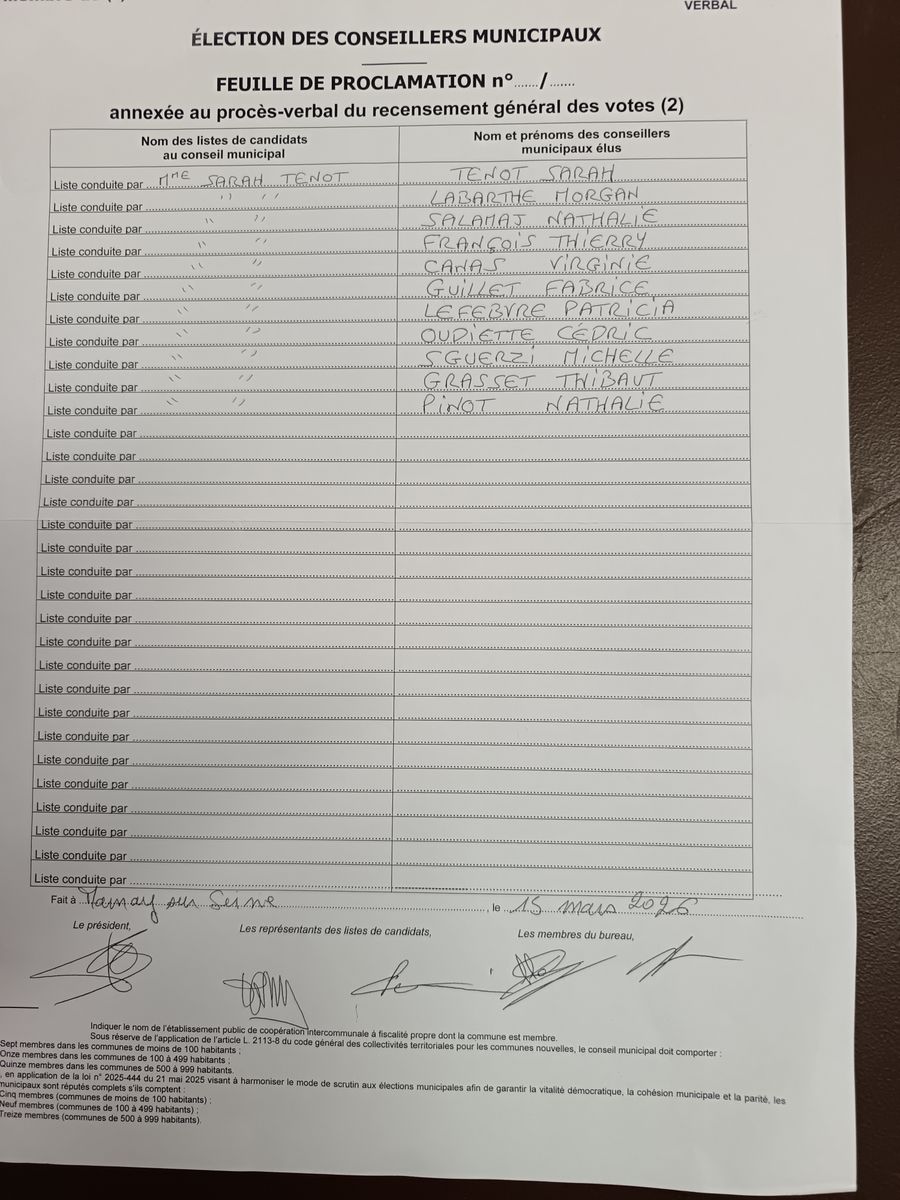 VERBAL
ÉLECTION DES CONSEILLERS MUNICIPAUX
FEUILLE DE PROCLAMATION n°....../.......
annexée au procès-verbal du recensement général des votes (2)
Nom des listes de candidats au conseil municipal
Nom et prénoms des conseillers municipaux élus
Liste conduite par MME SARAH TENOT TENOT SARAH
Liste conduite par " " LABARTHE MORGAN
Liste conduite par " " SALAMAJ NATHALIE
Liste conduite par " " FRANÇOIS THIERRY
Liste conduite par " " CANAS VIRGINIE
Liste conduite par " " GUILLET FABRICE
Liste conduite par " " LEFEBVRE PATRICIA
Liste conduite par " " OUDIETTE CÉDRIC
Liste conduite par " " SGUERZI MICHELLE
Liste conduite par " " GRASSET THIBAUT
Liste conduite par " " PINOT NATHALIE
Liste conduite par
Liste conduite par
Liste conduite par
Liste conduite par
Liste conduite par
Liste conduite par
Liste conduite par
Liste conduite par
Liste conduite par
Liste conduite par
Liste conduite par
Liste conduite par
Liste conduite par
Liste conduite par
Liste conduite par
Liste conduite par
Liste conduite par
Liste conduite par
Liste conduite par
Liste conduite par
Fait à Marnay sur Seine, le 15 mars 2026
Le président, Les représentants des listes de candidats, Les membres du bureau,
Indiquer le nom de l'établissement public de coopération intercommunale à fiscalité propre dont la commune est membre.
Sous réserve de l'application de l'article L. 2113-8 du code général des collectivités territoriales pour les communes nouvelles, le conseil municipal doit comporter :
Sept membres dans les communes de moins de 100 habitants ;
Onze membres dans les communes de 100 à 499 habitants ;
Quinze membres dans les communes de 500 à 999 habitants.
, en application de la loi n° 2025-444 du 21 mai 2025 visant à harmoniser le mode de scrutin aux élections municipales afin de garantir la vitalité démocratique, la cohésion municipale et la parité, les
municipaux sont réputés complets s'ils comptent :
Cinq membres (communes de moins de 100 habitants) ;
Neuf membres (communes de 100 à 499 habitants) ;
Treize membres (communes de 500 à 999 habitants).